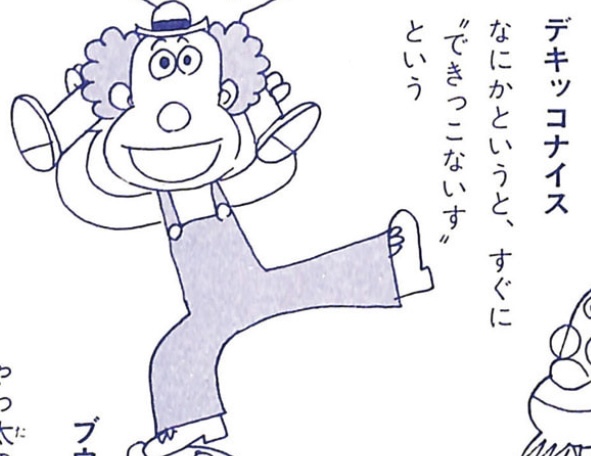 デキッコナイス
なにかというと、すぐに
〝できっこないす〟
という
ブウ
やっ太
た